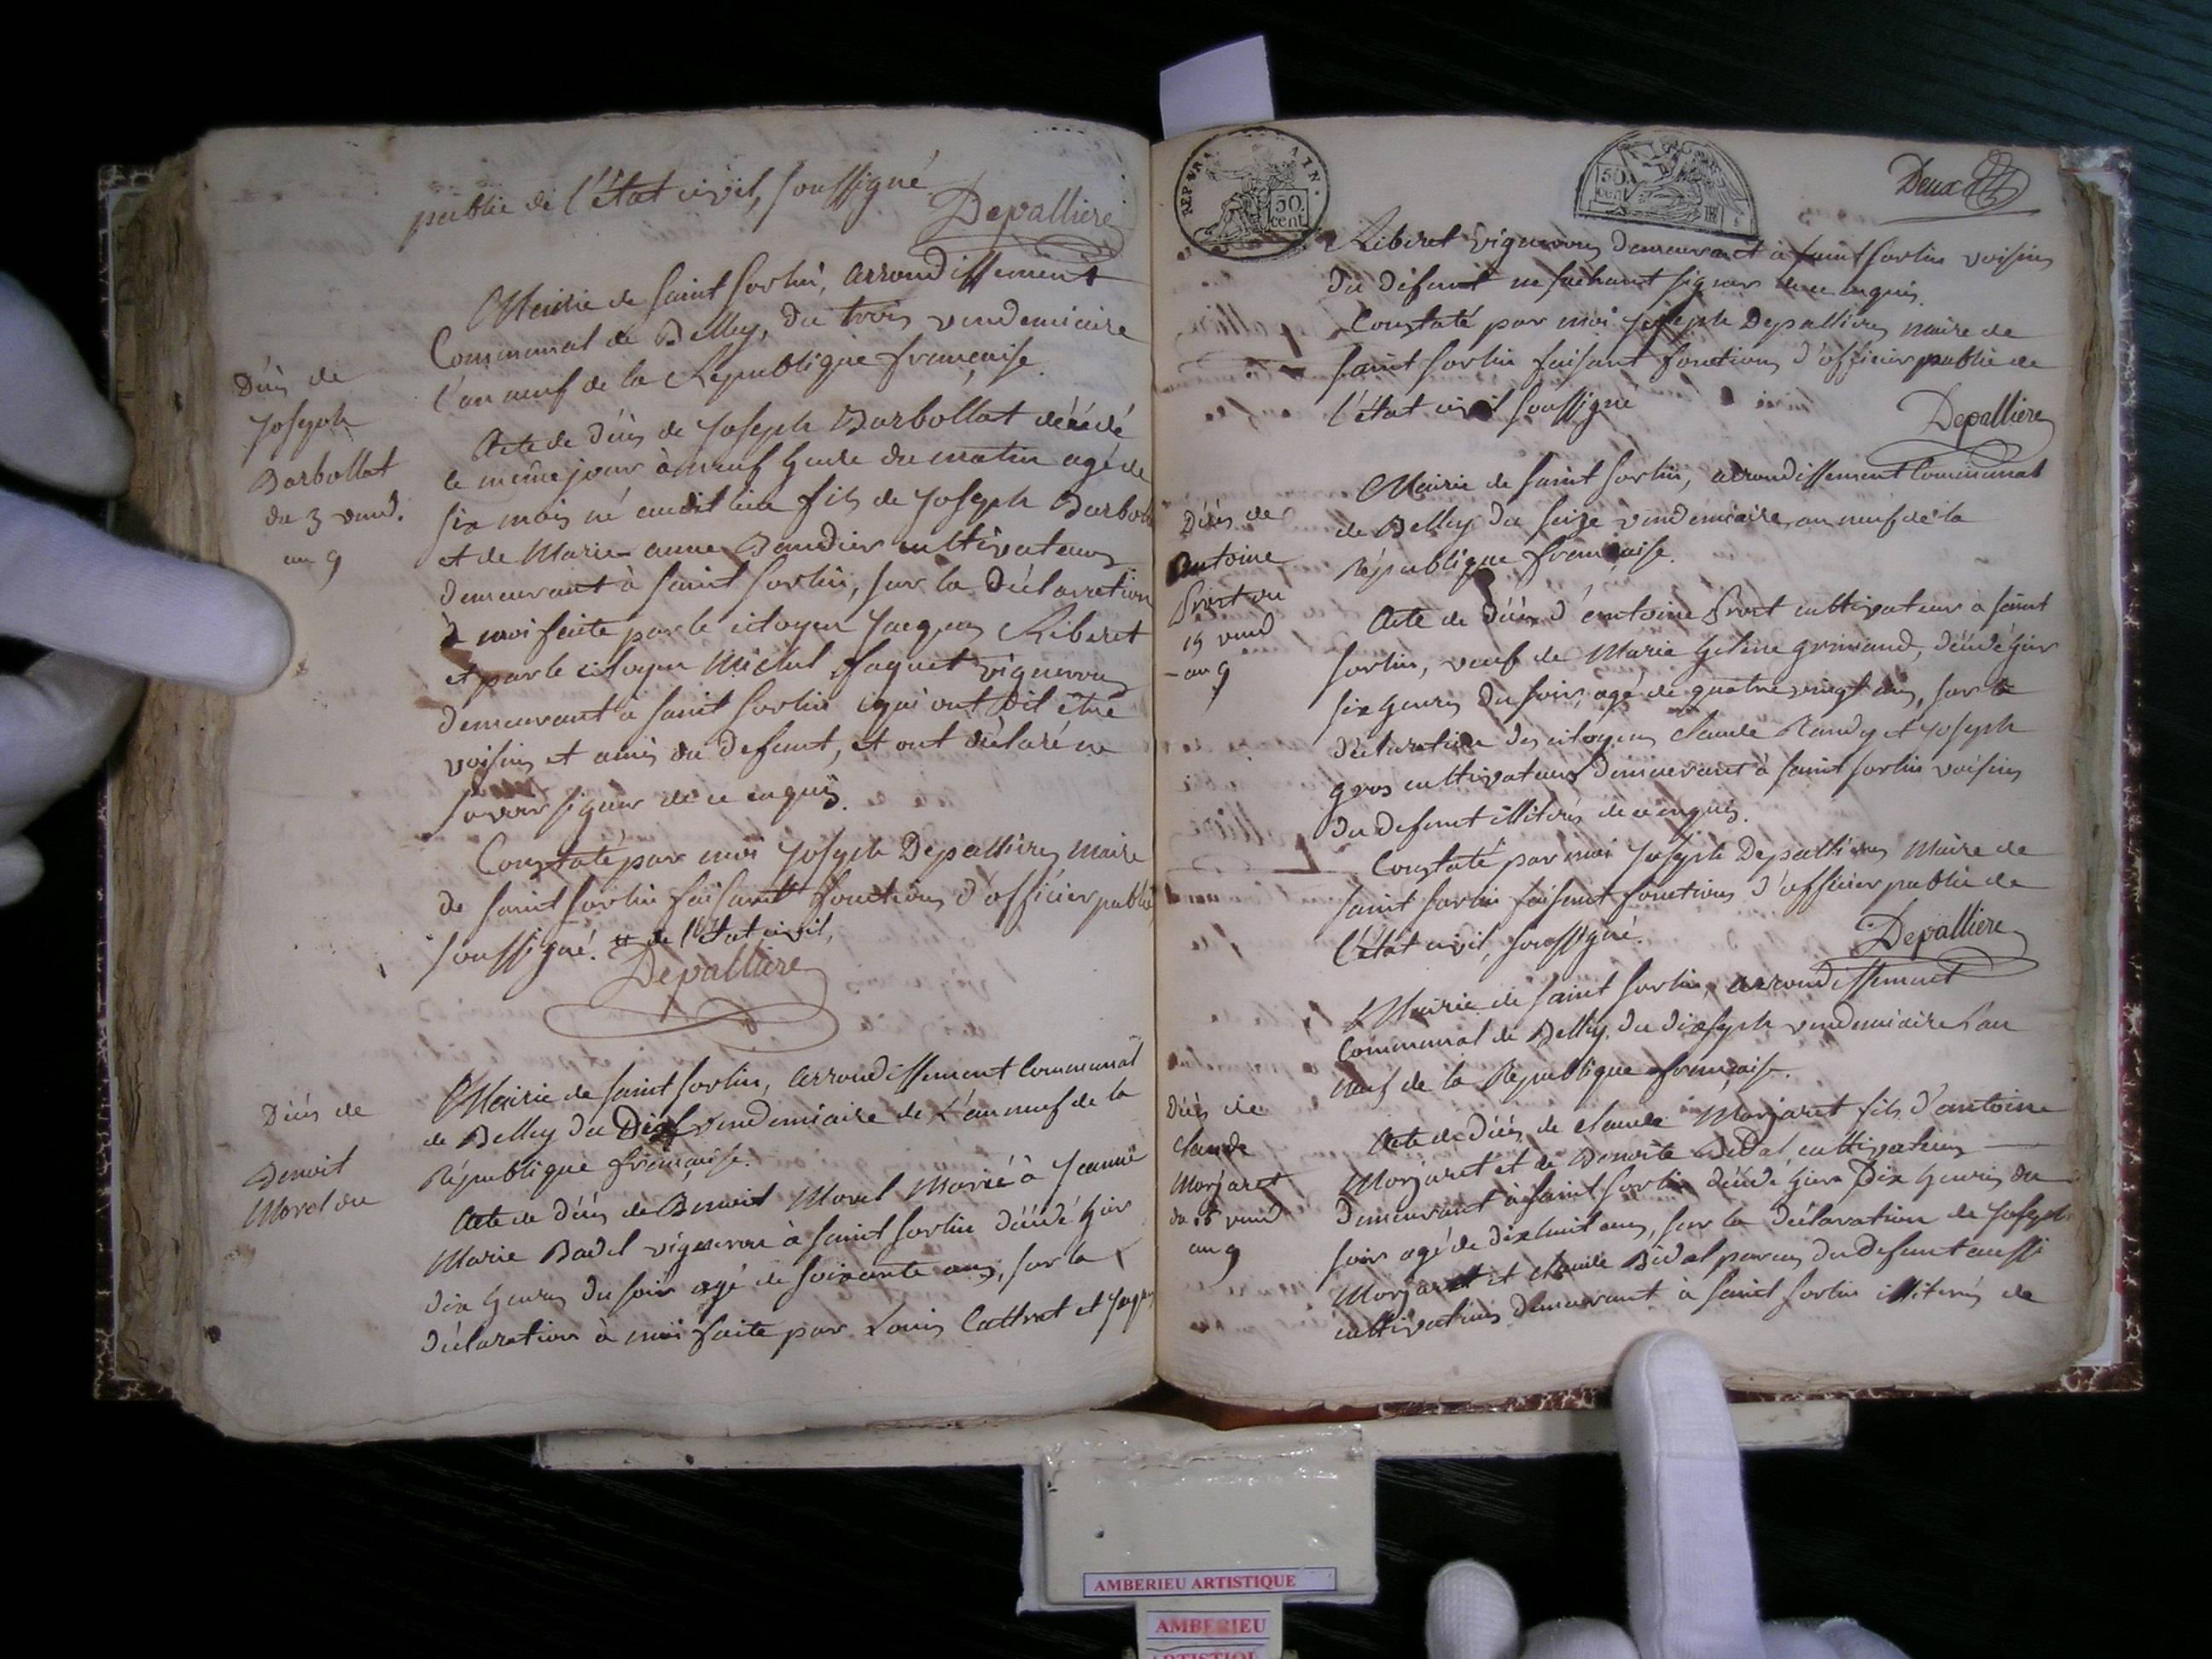 publie de l'état civil, soussigné
Depalliere
Mairie de Saint Sorlin, arrondissement
Communal de Belley, du trois vendemiaire
l'an neuf de la Republique francaise.
Décès de
Joseph
Barbollat
du 3 vend.
an 9
Acte de décès de Joseph Barbollat décédé
le même jour à neuf heure du matin agé de
six mois né audit lieu fils de Joseph Barboll
et de Marie-anne Baudier cultivateurs
demeurant à saint Sorlin, sur la déclaration
à moi faite par le citoyen Jacques Riberet
et par le citoyen Michel faquet vignerons
demeurant à saint Sorlin qui ont dit être
voisins et amis du defunt, et ont déclaré ne
savoir signer de ce enquis.
Constaté par moi Joseph Depallieres Maire
de saint Sorlin faisant fonctions d'officier public
soussigné. de l'état civil,
Depalliere
Mairie de saint Sorlin, arrondissement Communal
de Belley du Dix vendemiaire de L'an neuf de la
République francaise.
Décès de
Benoit
Morel du
Acte de décès de Benoit Morel Marié à Jeanne
Marie Badel vigneron à saint Sorlin décédé hier
dix heures du soir agé de soixante ans, sur la
déclaration à moi faite par Louis Cattret et Jacques
REP. FRA.
50
cent
50
cent
Deux
Riberet vignerons demeurant à saint Sorlin voisins
du défunt ne sachant signer de ce enquis.
Constaté par moi Joseph Depallieres maire de
saint Sorlin faisant fonctions d'officier public de
l'état civil soussigné
Depalliere
Mairie de saint Sorlin, arrondissement Communal
de Belley du seize vendemiaire, an neuf de la
République francaise.
Décès de
Antoine
Prost du
vend
an 9
Acte de décès d'antoine Prost cultivateur à saint
Sorlin, veuf de Marie helène grimand, décédé hier
six heures du soir, agé de quatre vingt ans, sur la
déclaration des citoyens Claude Randy et Joseph
gros cultivateurs demeurant à saint Sorlin voisins
du defunt illiterés de ce enquis.
Constaté par moi Joseph Depallieres Maire de
saint Sorlin faisant fonctions d'officier public de
l'état civil, soussigné.
Depalliere
Mairie de saint Sorlin, arrondissement
Communal de Belley, du dixsept vendemiaire l'an
neuf de la République francaise.
Décès de
Claude
Morjaret
du 16 vend
an 9
Acte de décès de Claude Morjaret fils d'antoine
Morjaret et de Benoite Bidal cultivateurs
demeurant à saint Sorlin décédé hier dix heures du
soir agé de dixhuit ans, sur la déclaration de Joseph
Morjaret et Claude Bidal parens du defunt aussi
cultivateurs demeurant à saint Sorlin illiterés de
AMBERIEU ARTISTIQUE
AMBERIEU
ARTISTIQUE